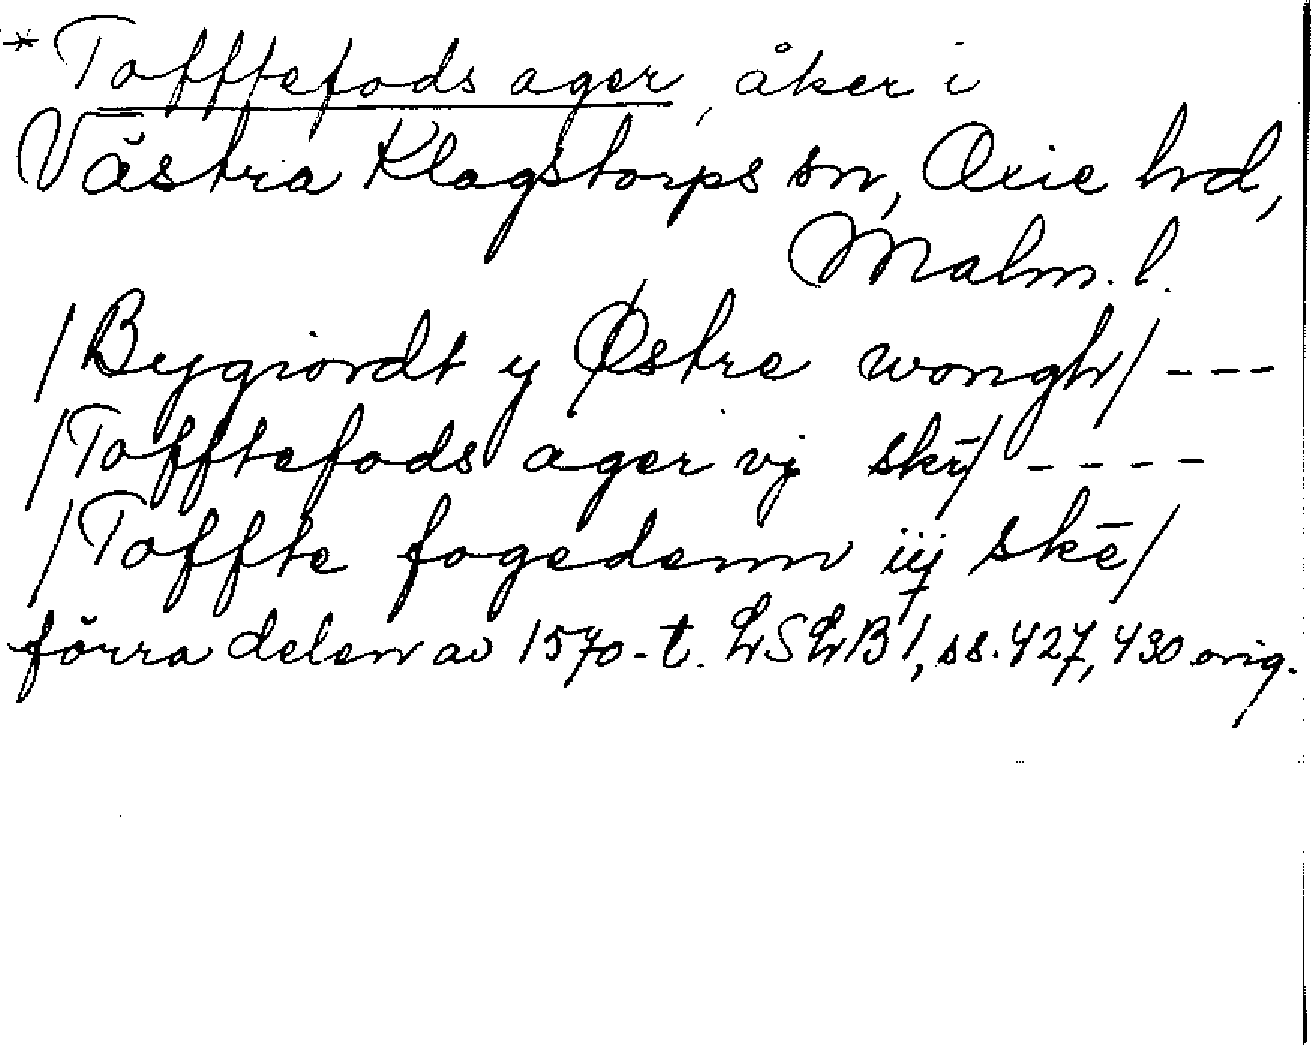 * Tofftefods ager, åker i
Västra Klagstorps sn, Oxie hd,
Malm. l.
/Bygiordt y Østre wongh/ ---
/Tofftefods ager vj skē/ ----
/Toffte fogedenn iij skē/
förra delen av 1570-t. LSLB 1, ss. 427, 430 orig.